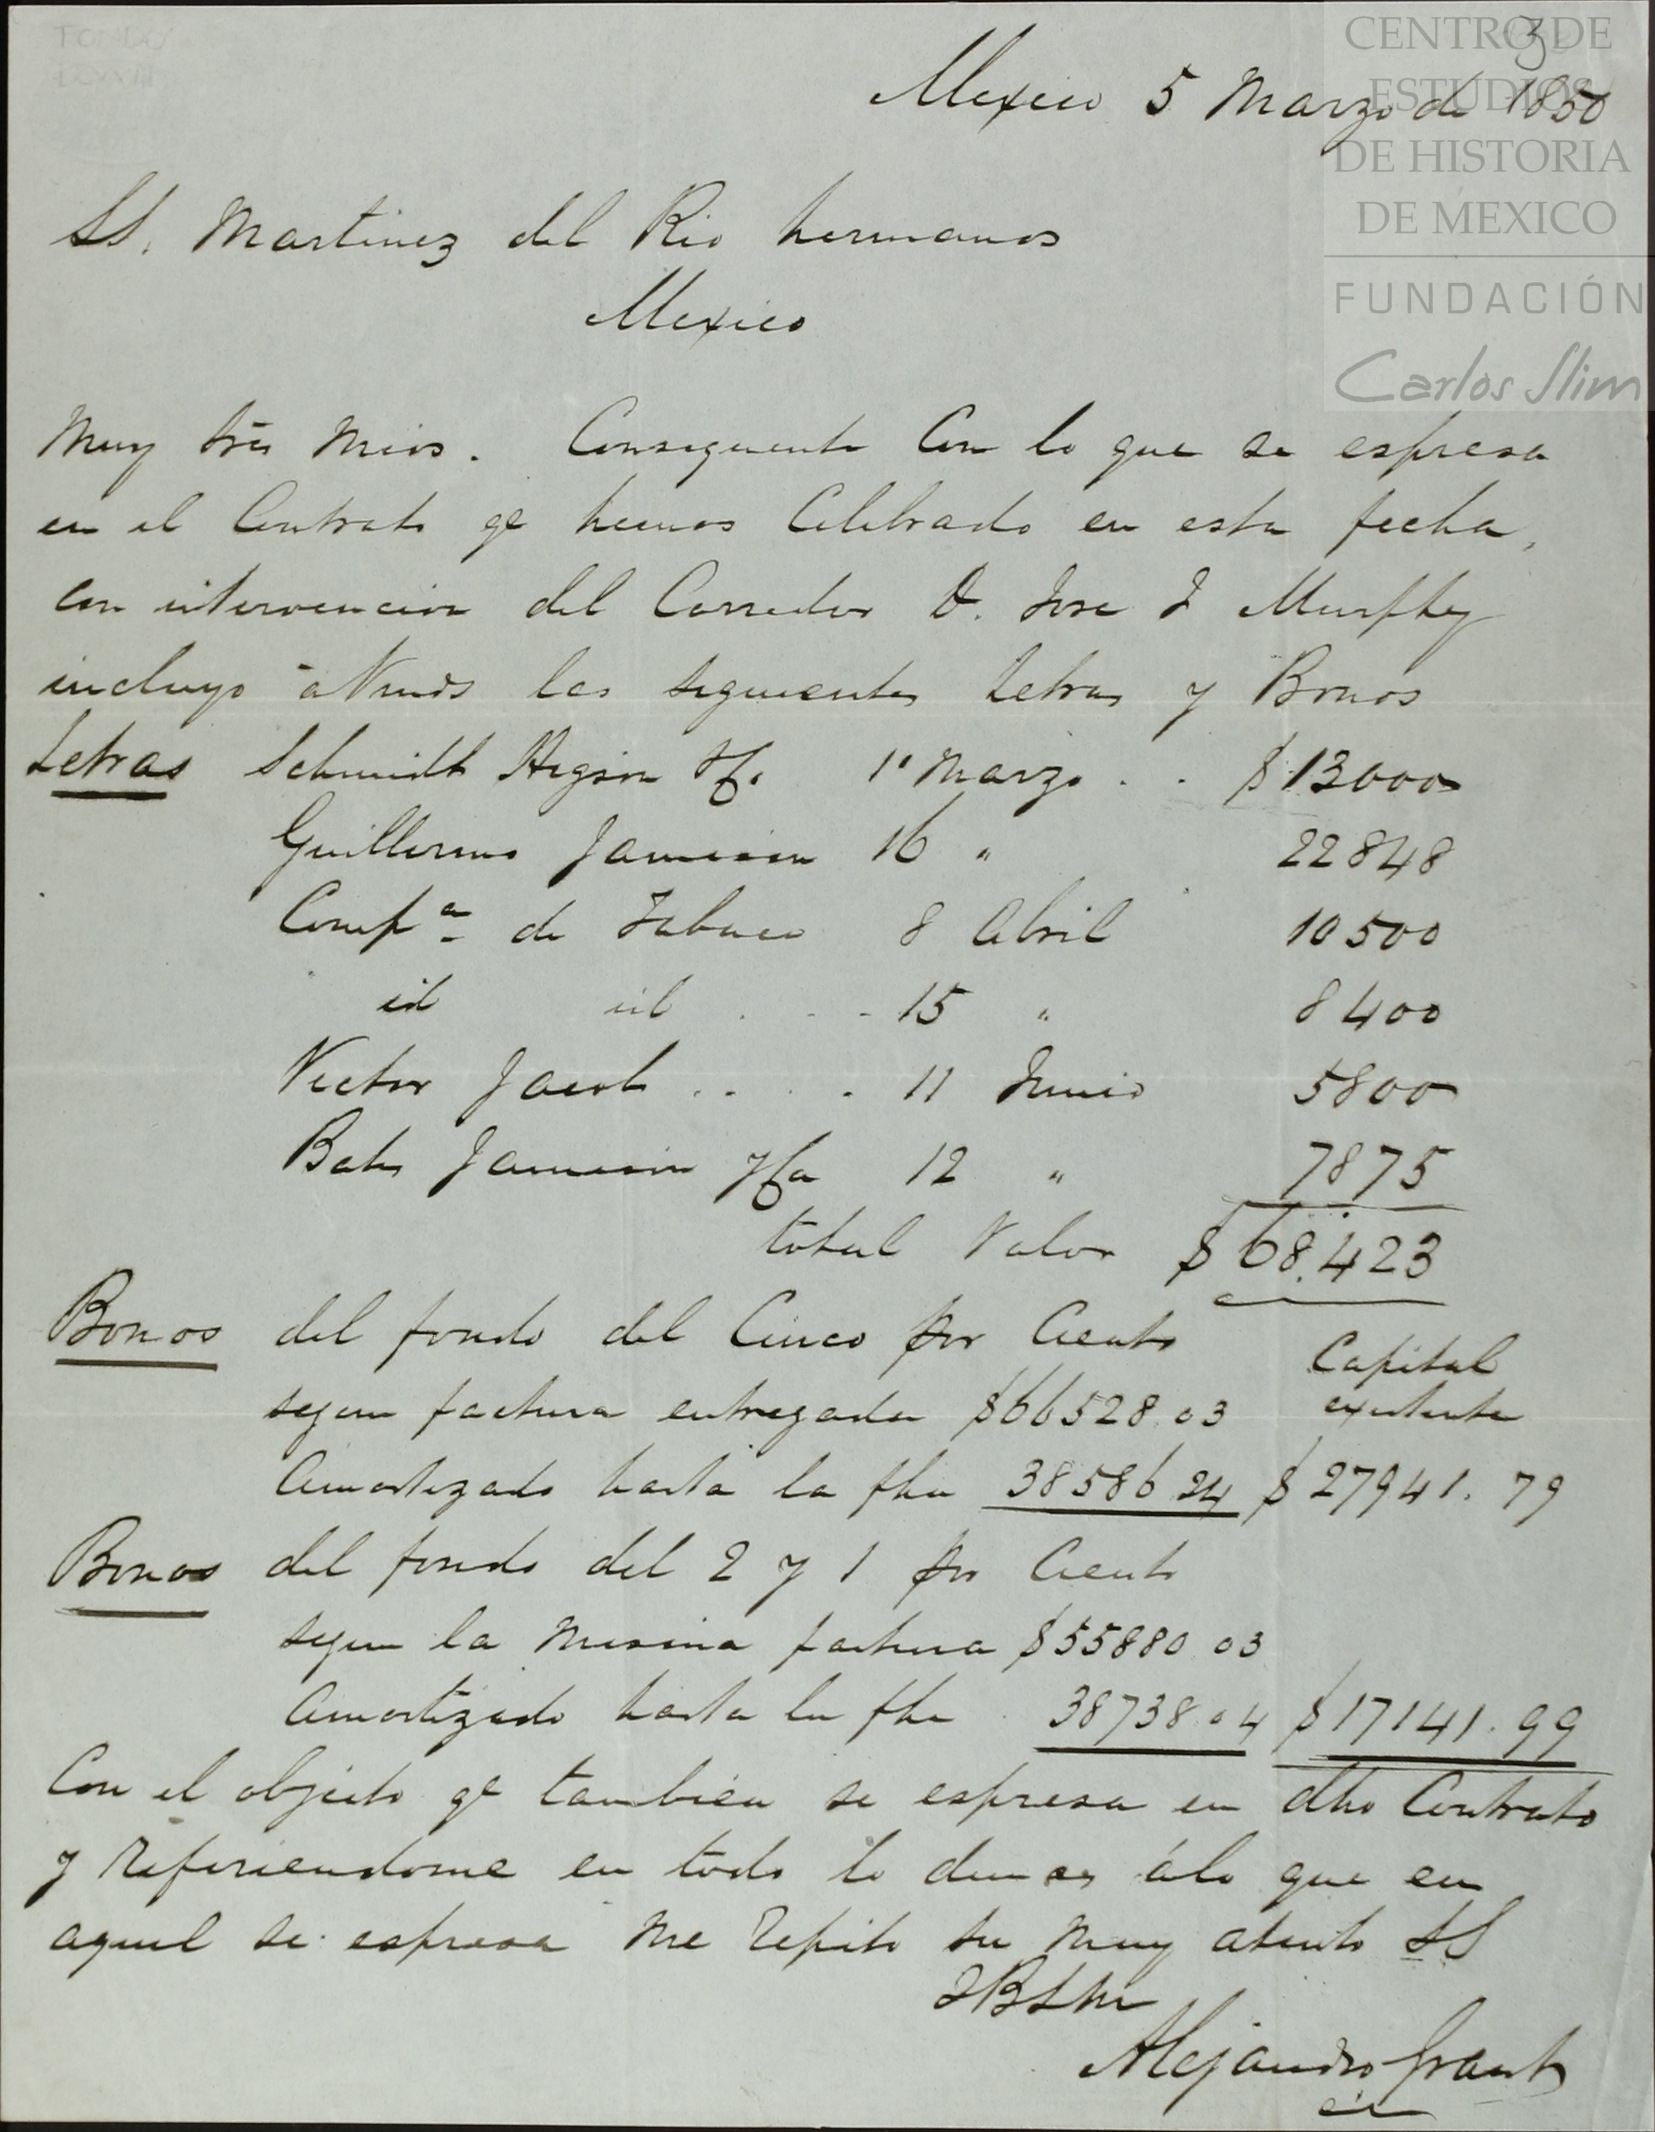 FONDO
LXXVII
CENTRO DE
ESTUDIOS
DE HISTORIA
DE MEXICO
FUNDACIÓN
Carlos Slim
3
Mexico 5 Marzo de 1850
SS. Martinez del Rio hermanos
Mexico
Muy Srēs mios. Consequente Con lo que se espresa
en el Contrato qe hemos Celebrado en esta fecha,
con intervencion del Corredor D. Jose J Murphy
incluyo a Vmds las siguientes letras y Bonos
Letras Schmidt Higson 1o Marzo . . $13000
Guillermo Jamison 16 " 22848
Compa de Tabaco 8 Abril 10500
id id . . . 15 " 8400
Victor Jacob . . . . 11 Junio 5800
Bates Jamison yCa 12 " 7875
total Valor $68.423
Bonos del fondo del Cinco por Ciento Capital
segun factura entregada $66528.03 existente
Amortizado hasta la fha 38586.24 $27941.79
Bonos del fondo del 2 y 1 por Ciento
segun la misma factura $55880.03
Amortizado hasta la fha 38738.04 $17141.99
Con el objeto qe tambien se espresa en dho Contrato
y refiriendome en todo lo demas álo que en
aquel se espresa me repito su muy atento SS
QBSM
Alejandro Grant